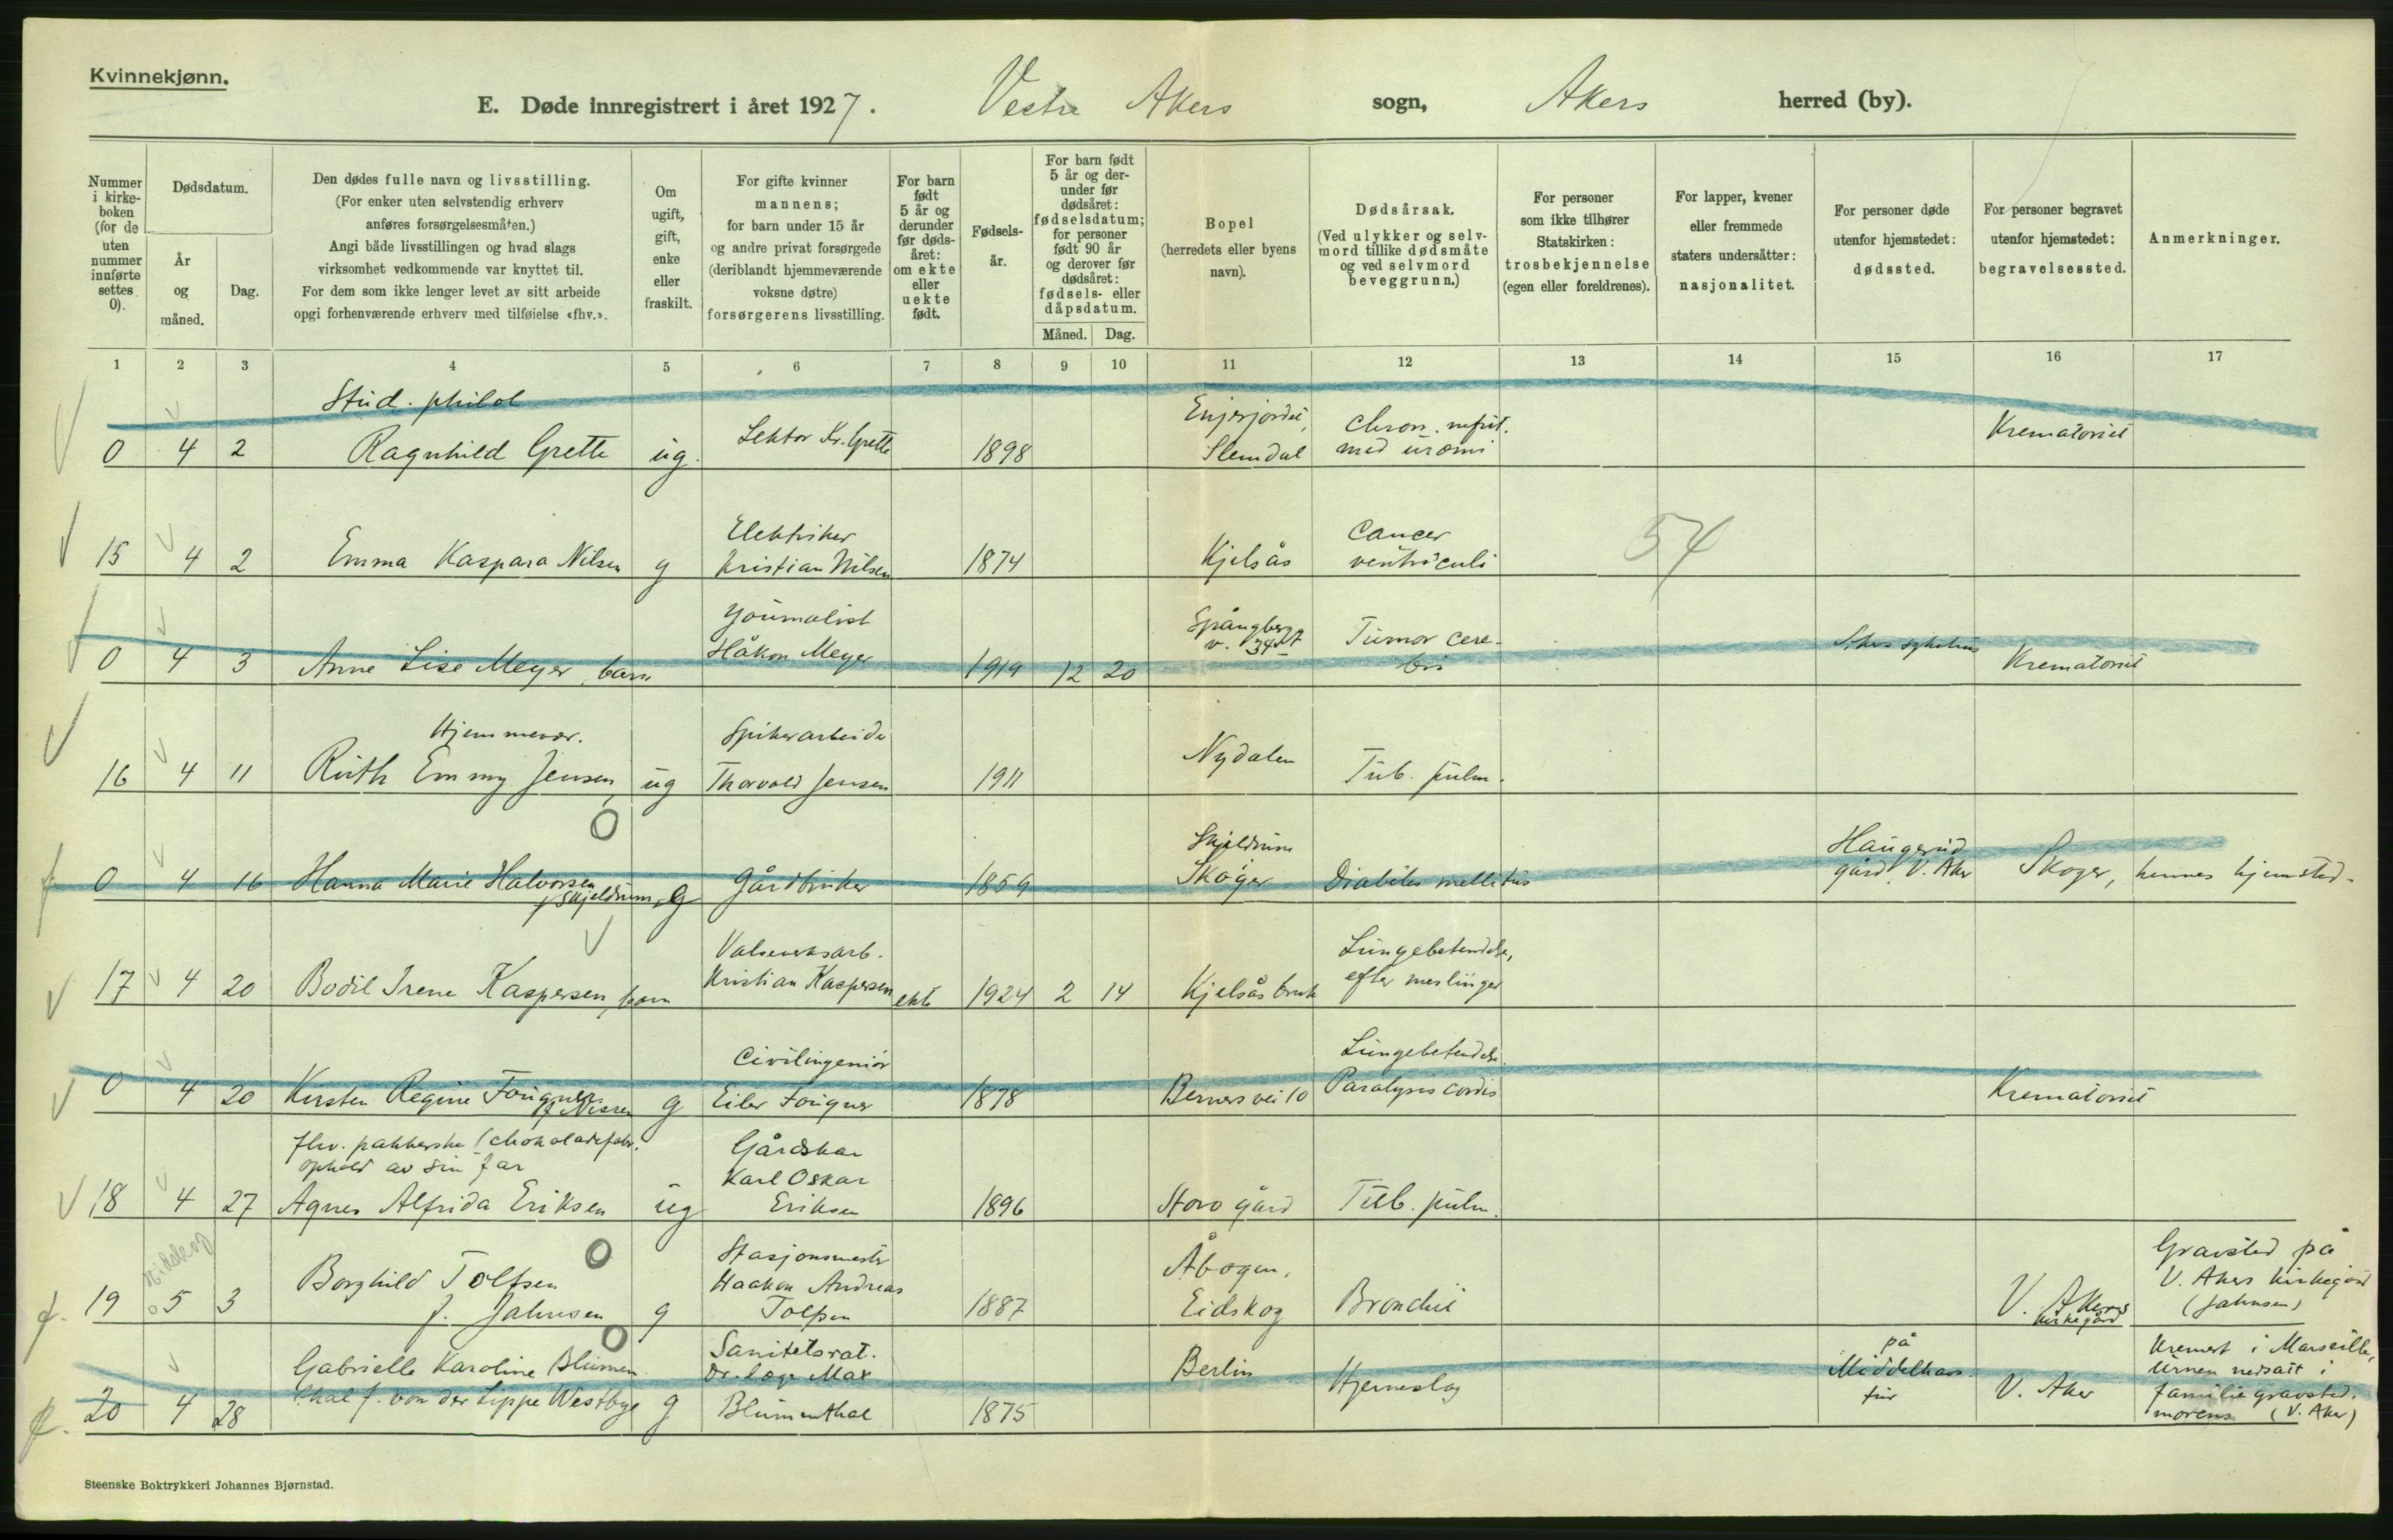 Kvinnekjønn.
E. Døde innregistrert i året 1927. Vestre Akers sogn, Akers herred (by).
Nummer i kirkeboken (for de uten nummer innførte settes 0).
Dødsdatum.
År og måned.
Dag.
Den dødes fulle navn og livsstilling.
(For enker uten selvstendig erhverv
anføres forsørgelsesmåten.)
Angi både livsstillingen og hvad slags
virksomhet vedkommende var knyttet til.
For dem som ikke lenger levet av sitt arbeide
opgi forhenværende erhverv med tilføielse «fhv.».
Om ugift, gift, enke eller fraskilt.
For gifte kvinner
mannens;
for barn under 15 år
og andre privat forsørgede
(deriblandt hjemmeværende
voksne døtre)
forsørgerens livsstilling.
For barn født 5 år og derunder før dødsåret: om ekte eller uekte født.
Fødselsår.
For barn født 5 år og derunder før dødsåret: fødselsdatum; for personer født 90 år og derover før dødsåret: fødsels- eller dåpsdatum.
Måned. Dag.
Bopel
(herredets eller byens
navn).
Dødsårsak.
(Ved ulykker og selv-
mord tillike dødsmåte
og ved selvmord
beveggrunn.)
For personer
som ikke tilhører
Statskirken:
trosbekjennelse
(egen eller foreldrenes).
For lapper, kvener
eller fremmede
staters undersåtter:
nasjonalitet.
For personer døde
utenfor hjemstedet:
dødssted.
For personer begravet
utenfor hjemstedet:
begravelsessted.
Anmerkninger.
1 2 3 4 5 6 7 8 9 10 11 12 13 14 15 16 17
Stud. philol
0 4 2 Ragnhild Grette ug. Lektor Kr. Grette 1898 Slemdal Chron. nefrit. med uræmi Krematoriet
Elektriker
15 4 2 Emma Kaspara Nilsen g Kristian Nilsen 1874 Kjelsås Cancer ventriculi 54
Journalist
0 4 3 Anne Lise Meyer, barn Håkon Meyer 1919 12 20 Spångberg v. 34 Tumor cerebri Akers sykehus Krematoriet
Hjemmevær. Spikerarbeider
16 4 11 Ruth Emmy Jensen, ug Thorvald Jensen 1911 Nydalen Tub. pulm.
0 4 16 Hanna Marie Halvorsen f Skjeldrum, g Gårdbruker 1859 Skjeldrum Skoger Diabetes mellitus Haugerud gård, V. Aker Skoger, hennes hjemsted.
Valseverksarb.
17 4 20 Bodil Irene Kaspersen, barn Kristian Kaspersen ekte 1924 2 14 Kjelsås bruk Lungebetendelse, efter meslinger
Civilingeniør
0 4 20 Kirsten Regine Fougner f Nissen g Eiler Fougner 1878 Berners vei 10 Lungebetendelse. Paralysis cordis Krematoriet
fhv. pakkerske (chokoladefabr.
ophold av sin far
18 4 27 Agnes Alfrida Eriksen ug Gårdskar Karl Oskar Eriksen 1896 Storo gård Tub. pulm.
Eidskog
19 5 3 Borghild Tolfsen f. Jahnsen g Stasjonsmester Haakon Andreas Tolfsen 1887 Åbogen, Eidskog Bronchit V. Akers kirkegård Gravsted på V. Akers kirkegård (Jahnsen)
20 4 28 Gabrielle Karoline Blumenthal f. von der Lippe Westbye g Sanitetsrat. Dr. læge Max Blumenthal 1875 Berlin Hjerneslag på Middelhavstur V. Aker Kremert i Marseille, Urnen nedsatt i familiegravsted. morens (V. Aker)
Steenske Boktrykkeri Johannes Bjørnstad.